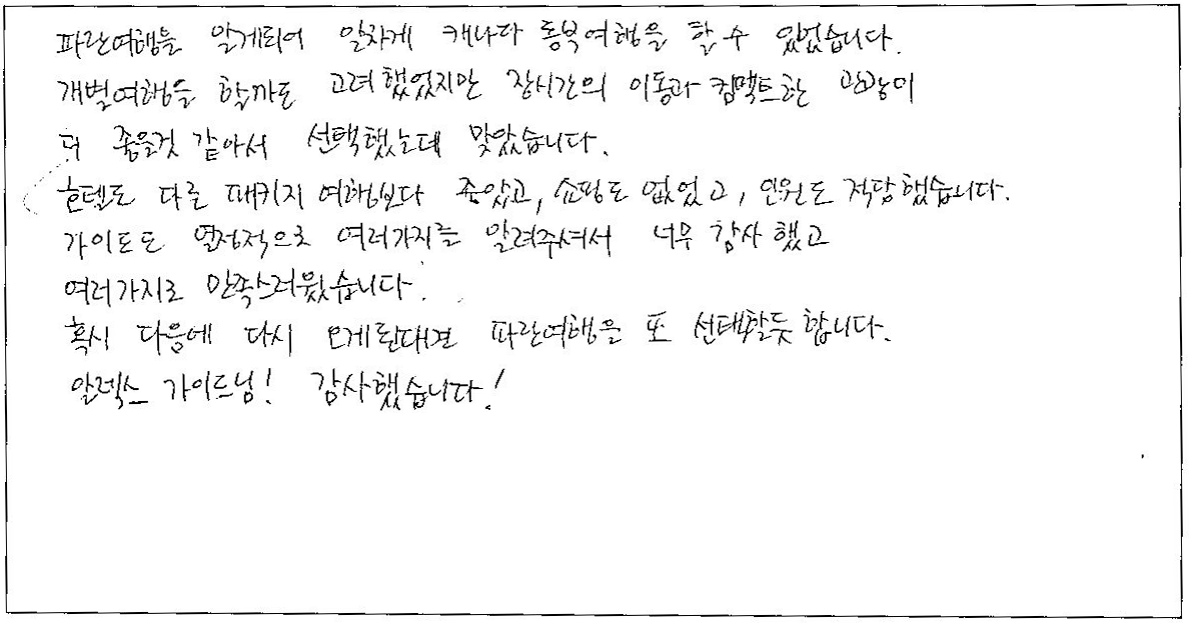 파란여행을 알게되어 알차게 캐나다 동부여행을 할 수 있었습니다.
개별여행을 할까도 고려했었지만 장시간의 이동과 컴팩트한 관광이
더 좋을것 같아서 선택했는데 맞았습니다.
호텔도 다른 패키지 여행보다 좋았고, 쇼핑도 없었고, 인원도 적당했습니다.
가이드도 열정적으로 여러가지를 알려주셔서 너무 감사했고
여러가지로 만족스러웠습니다.
혹시 다음에 다시 오게된대면 파란여행을 또 선택할듯 합니다.
알렉스 가이드님! 감사했습니다!